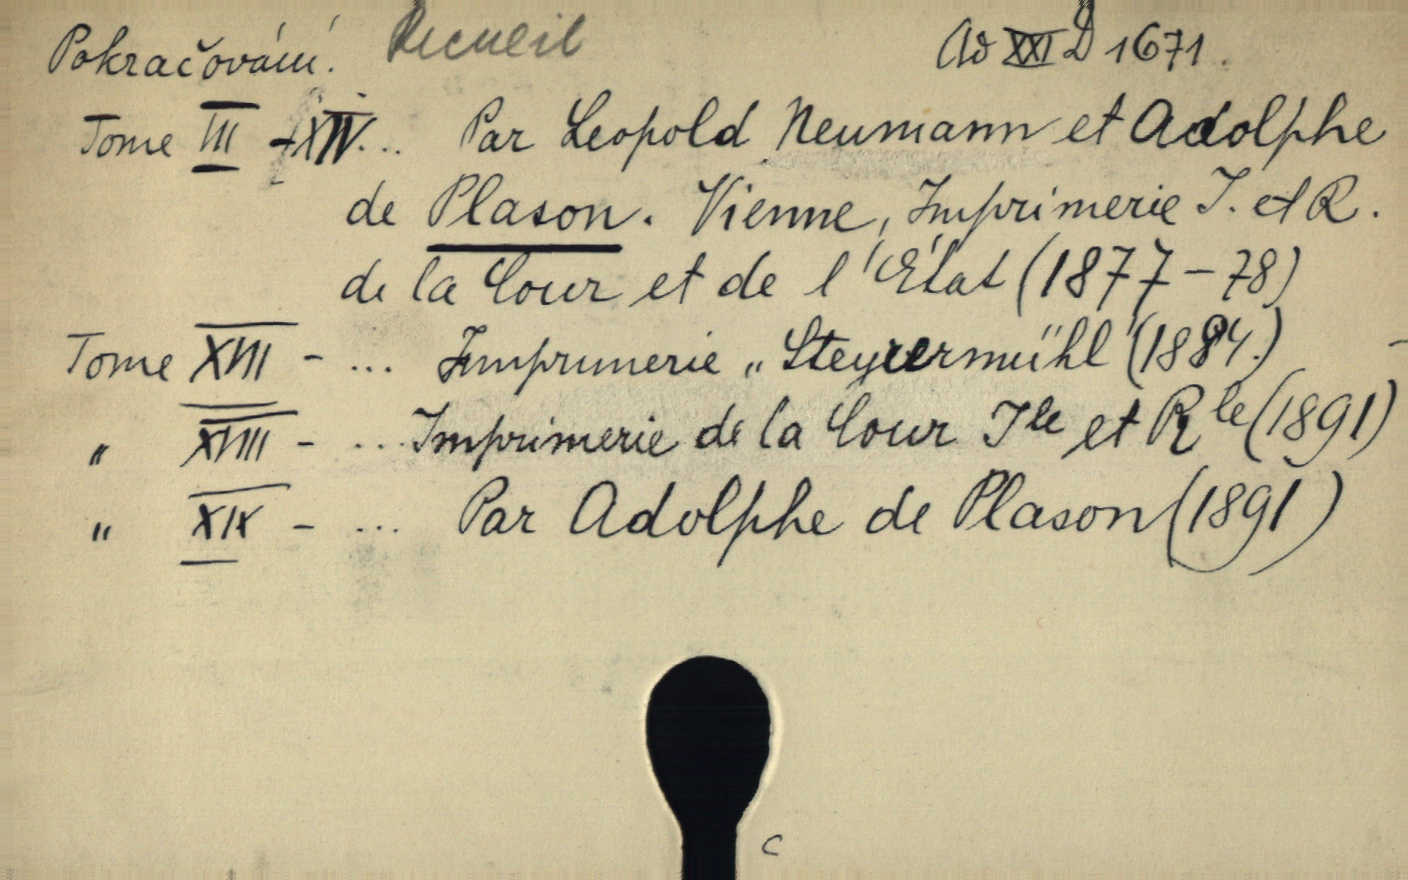 Pokračování. Recueil Ad XXI D 1671.
Tome III - XIV... Par Leopold Neumann et Adolphe
de Plason. Vienne, Imprimerie I. et R.
de la Cour et de l'État (1877-78)
Tome XVII - ... Imprimerie „Steyrermühl" (1884.)
" XVIII - ... Imprimerie de la Cour Ile et Rle (1891)
" XIX - ... Par Adolphe de Plason (1891)
c